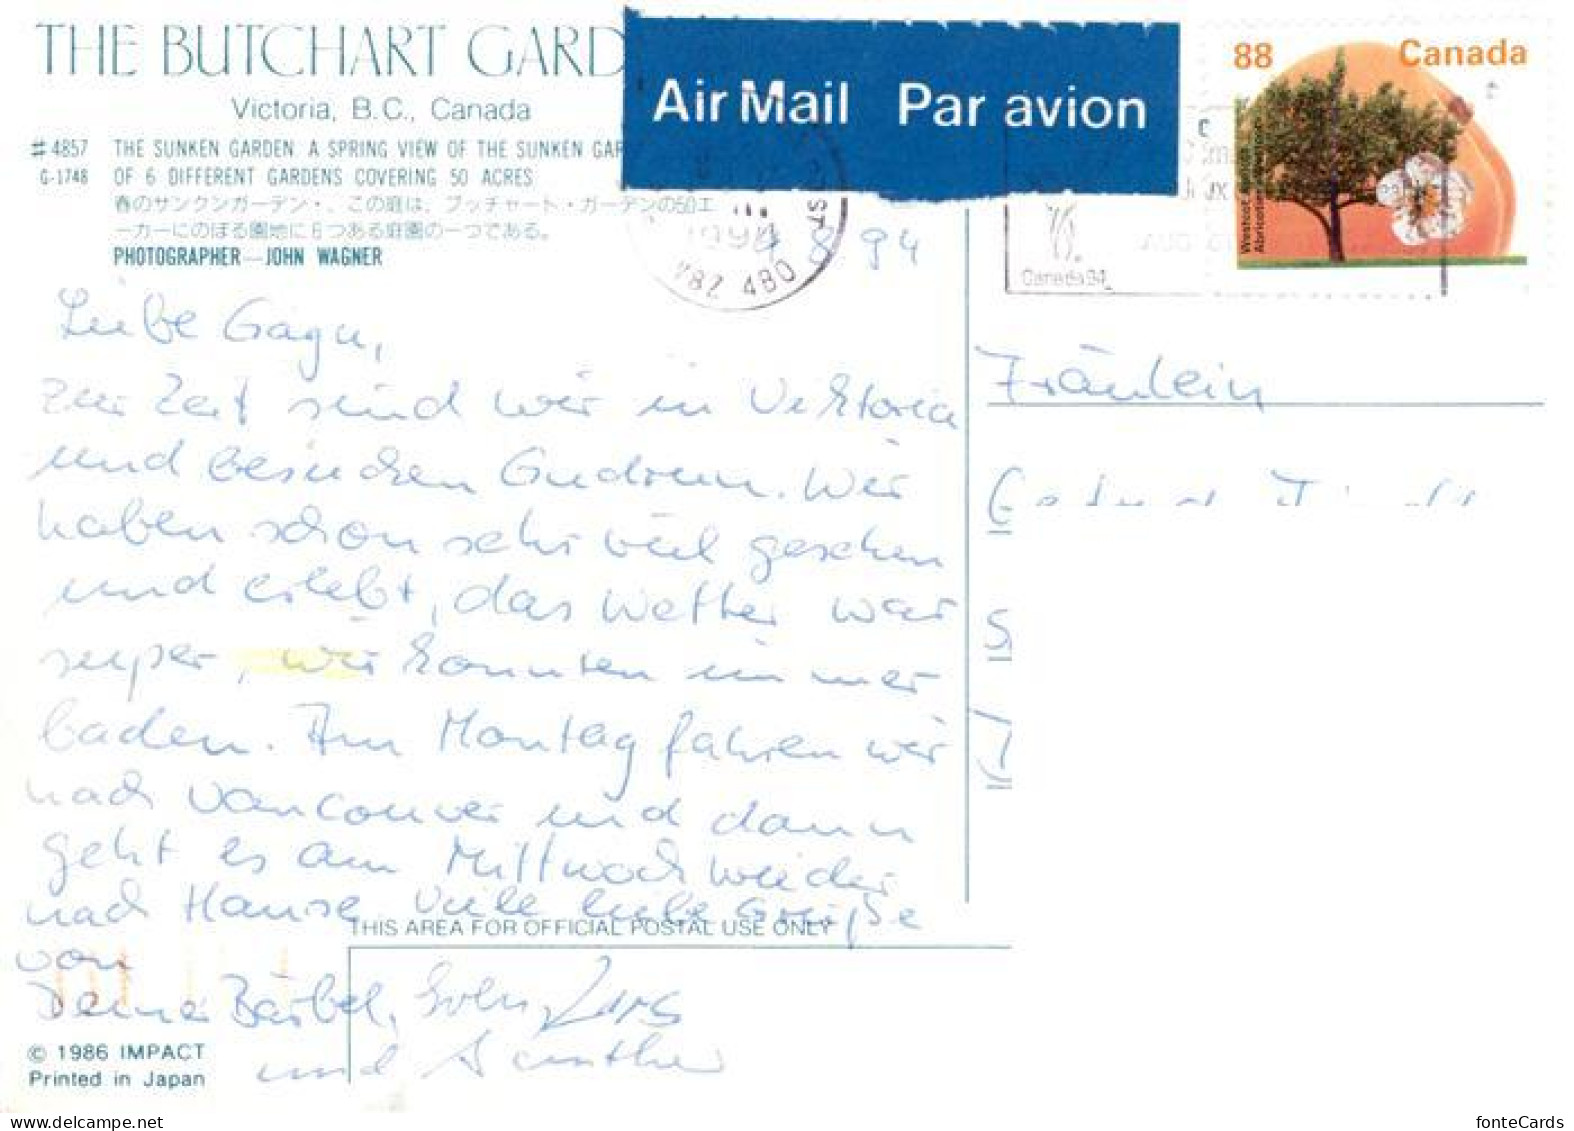 THE BUTCHART GARD
Victoria, B.C., Canada
# 4857 THE SUNKEN GARDEN. A SPRING VIEW OF THE SUNKEN GAR
G-1748 OF 6 DIFFERENT GARDENS COVERING 50 ACRES
春のサンクンガーデン・、この庭は、ブッチャート・ガーデンの50エ
ーカーにのぼる園地に6つある庭園の一つである。
PHOTOGRAPHER—JOHN WAGNER
Air Mail Par avion
88 Canada
1994
V8Z 4B0
Canada94
8 94
Liebe
zur Zeit sind wir in Viktoria
und besuchen Gudrun. Wir
haben schon sehr viel gesehen
und erlebt, das Wetter war
super, wir konnten immer
baden. Am Montag fahren wir
nach Vancouver und dann
geht es am Mittwoch wieder
nach Hause Viele liebe Grüße
von
Deine Bärbel, Lars
und Günther
Fräulein
THIS AREA FOR OFFICIAL POSTAL USE ONLY
© 1986 IMPACT
Printed in Japan
fonteCards